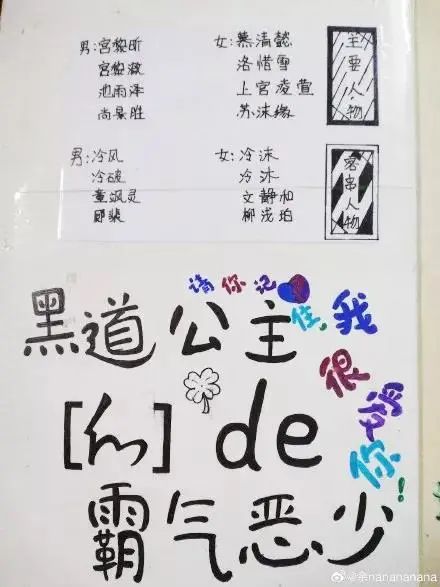 男:宫黎昕 女:慕清懿
宫黎澈 洛惜雪
池雨泽 上官凌萱
尚景胜 苏沫缘
主要人物
男:冷风 女:冷沫
冷破 冷沐
董飒灵 文静和
即裴 柳浅珀
客串人物
请你记住,我很爱你!
黑道公主
[和] de
霸气恶少
@余nanananana